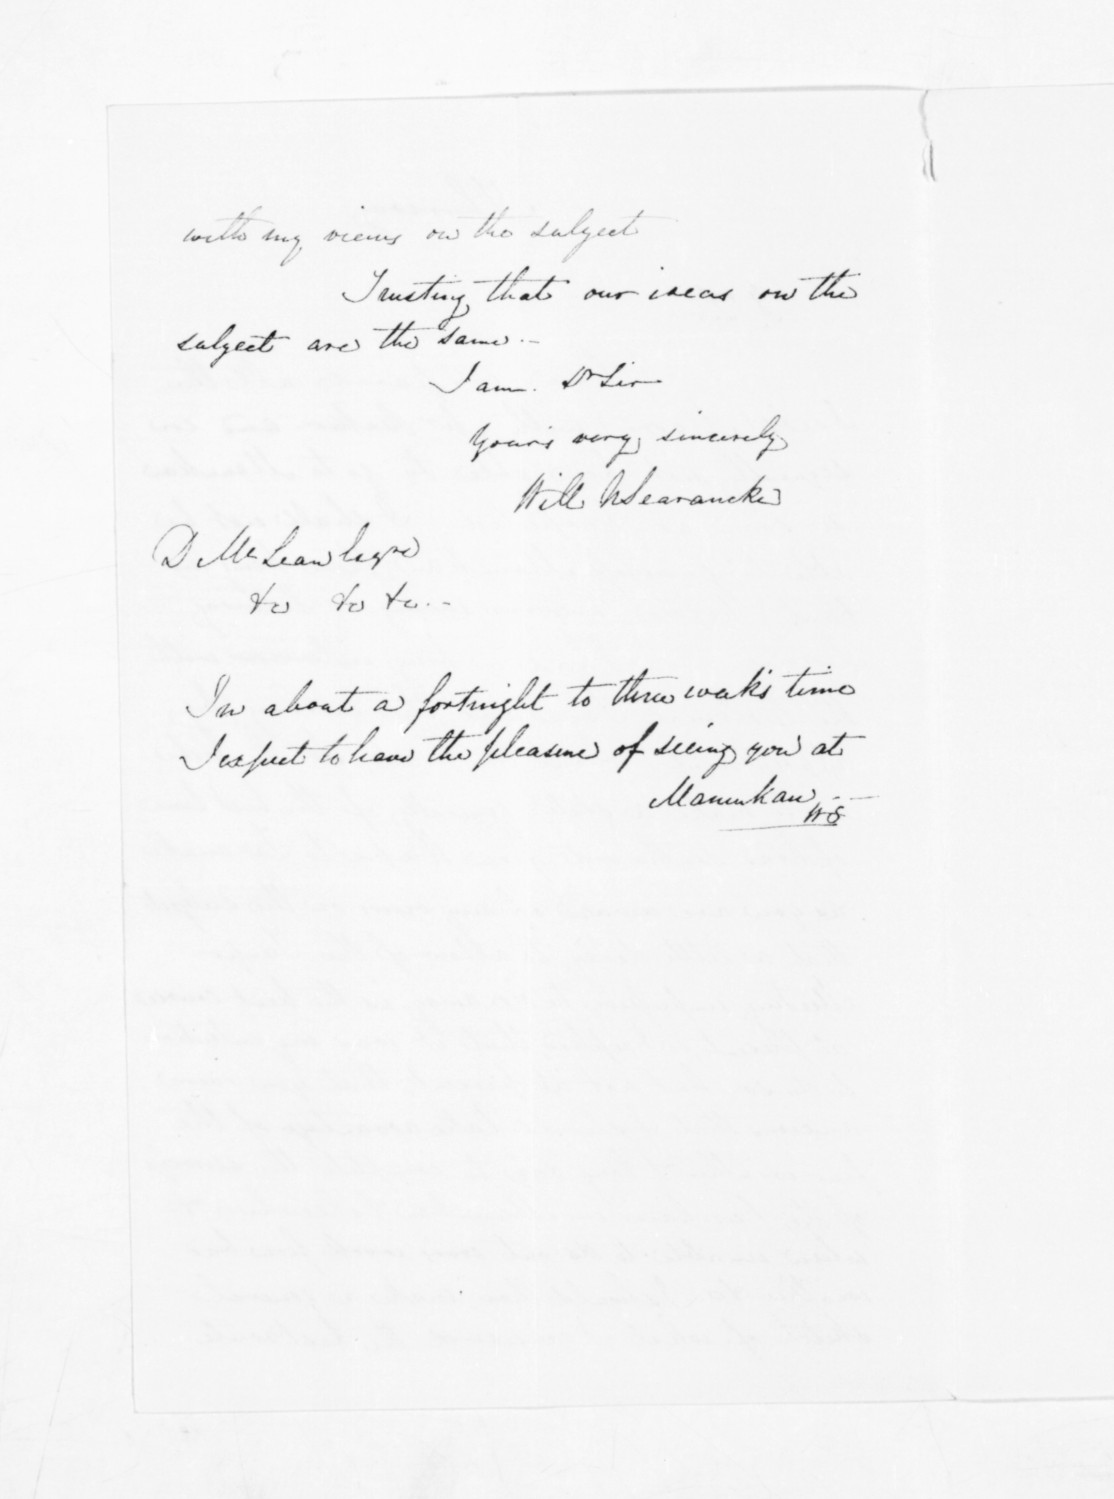 with my views on the subject
Trusting that our ideas on the
subject are the same. -
I am. Dr Sir
Yours very sincerely
Will N Searancke
D McLean Esqre
&c &c &c. -
In about a fortnight to three week's time
I expect to have the pleasure of seeing you at
Manukau. -
WS